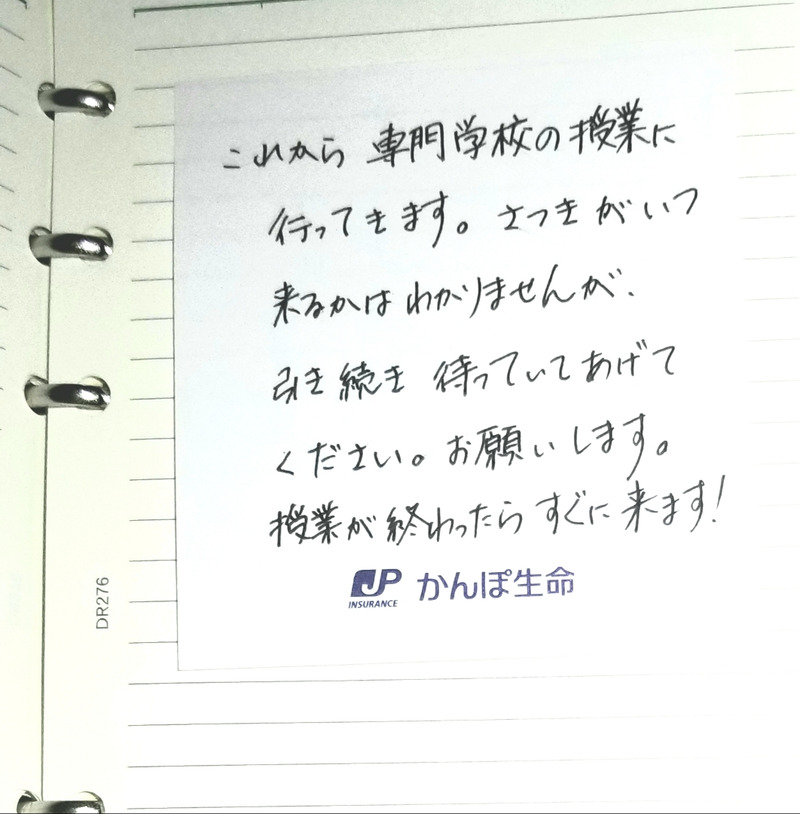 これから 専門学校の授業に
行ってきます。さつきがいつ
来るかはわかりませんが、
引き続き 待っていてあげて
ください。お願いします。
授業が終わったらすぐに来ます!
JP INSURANCE かんぽ生命
DR276